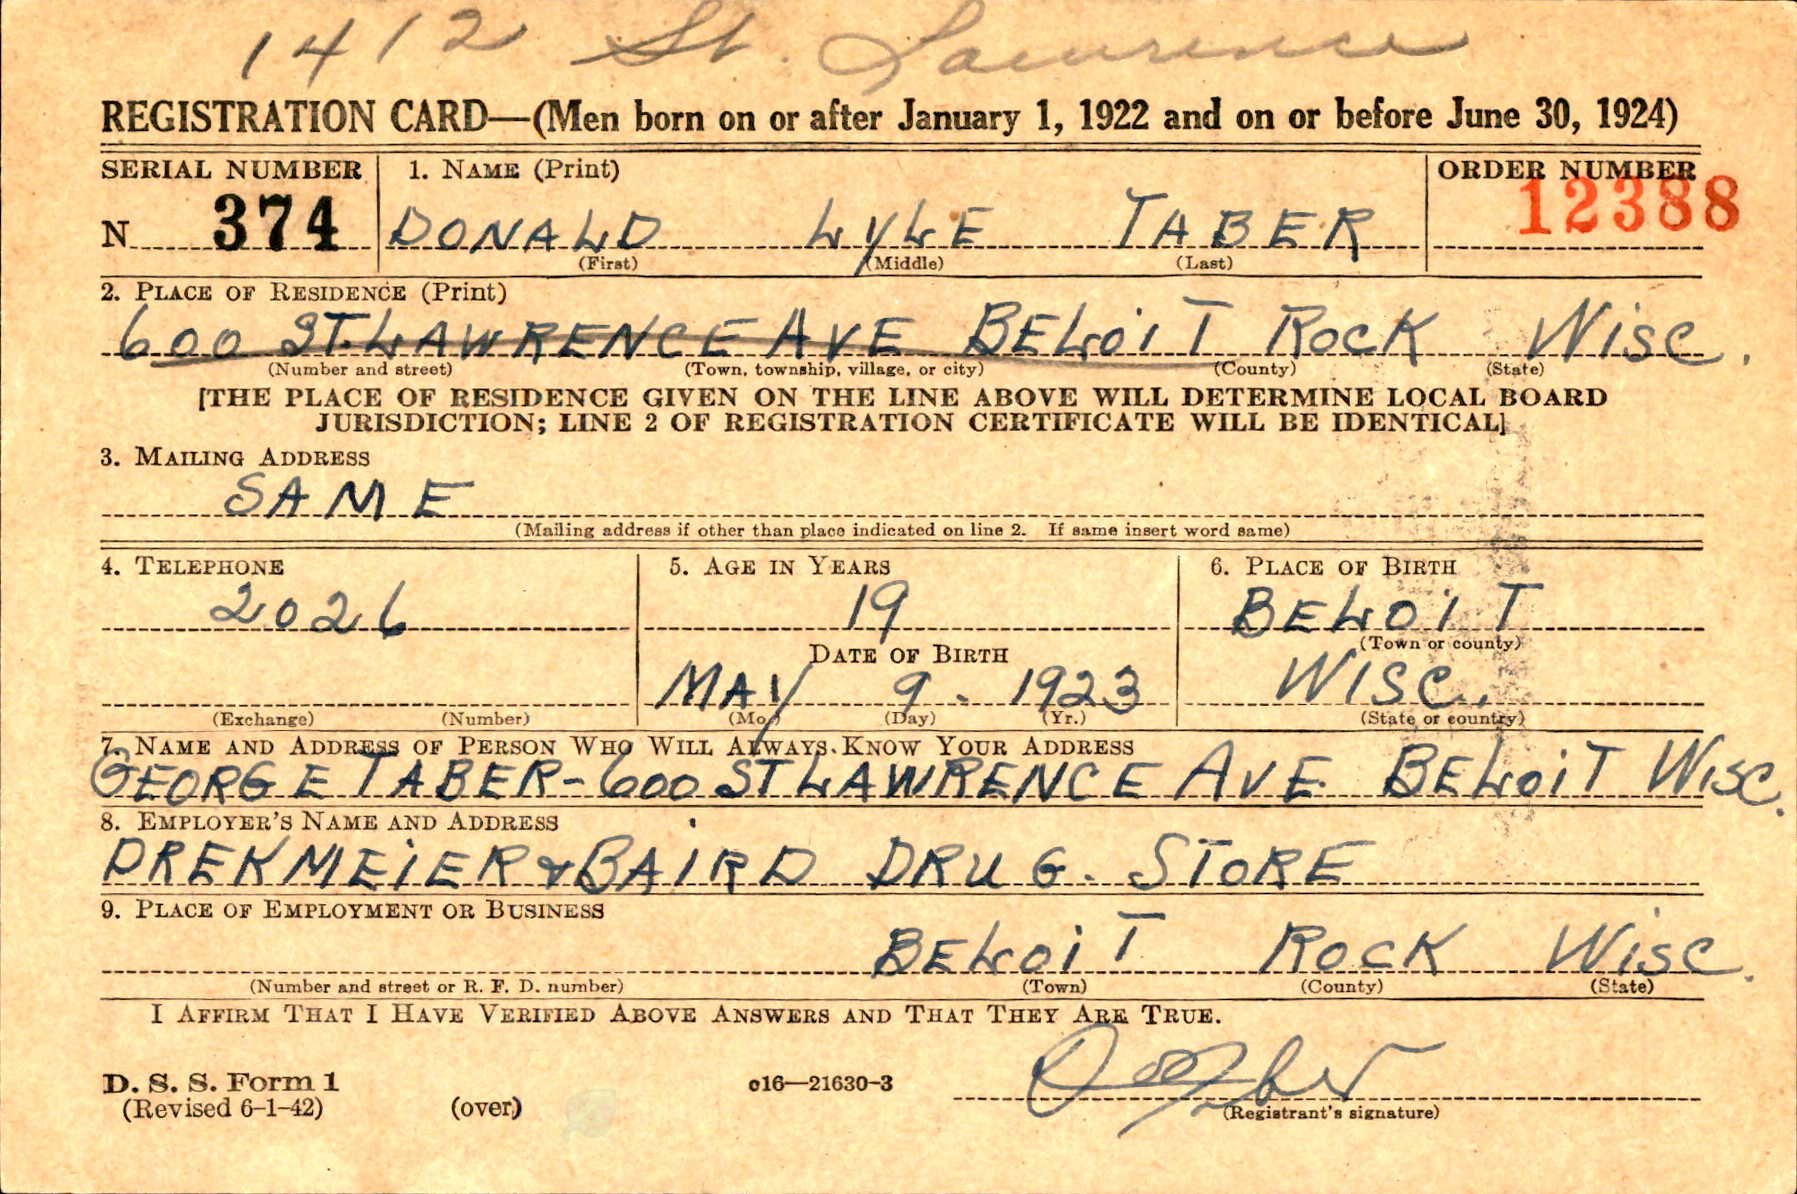 1412 St. Lawrence
REGISTRATION CARD—(Men born on or after January 1, 1922 and on or before June 30, 1924)
SERIAL NUMBER 1. NAME (Print) ORDER NUMBER
N 374 DONALD LYLE TABER 12388
(First) (Middle) (Last)
2. PLACE OF RESIDENCE (Print)
600 ST. LAWRENCE AVE BELOIT ROCK WISC.
(Number and street) (Town, township, village, or city) (County) (State)
[THE PLACE OF RESIDENCE GIVEN ON THE LINE ABOVE WILL DETERMINE LOCAL BOARD
JURISDICTION; LINE 2 OF REGISTRATION CERTIFICATE WILL BE IDENTICAL]
3. MAILING ADDRESS
SAME
(Mailing address if other than place indicated on line 2. If same insert word same)
4. TELEPHONE 5. AGE IN YEARS 6. PLACE OF BIRTH
2026 19 BELOIT
(Town or county)
DATE OF BIRTH
MAY 9 - 1923 WISC.
(Exchange) (Number) (Mo.) (Day) (Yr.) (State or country)
7. NAME AND ADDRESS OF PERSON WHO WILL ALWAYS KNOW YOUR ADDRESS
GEORGE TABER - 600 ST LAWRENCE AVE. BELOIT WISC.
8. EMPLOYER'S NAME AND ADDRESS
DREKMEIER & BAIRD DRUG. STORE
9. PLACE OF EMPLOYMENT OR BUSINESS
BELOIT ROCK WISC.
(Number and street or R. F. D. number) (Town) (County) (State)
I AFFIRM THAT I HAVE VERIFIED ABOVE ANSWERS AND THAT THEY ARE TRUE.
D. S. S. Form 1 c16—21630-3
(Revised 6-1-42) (over) (Registrant's signature)